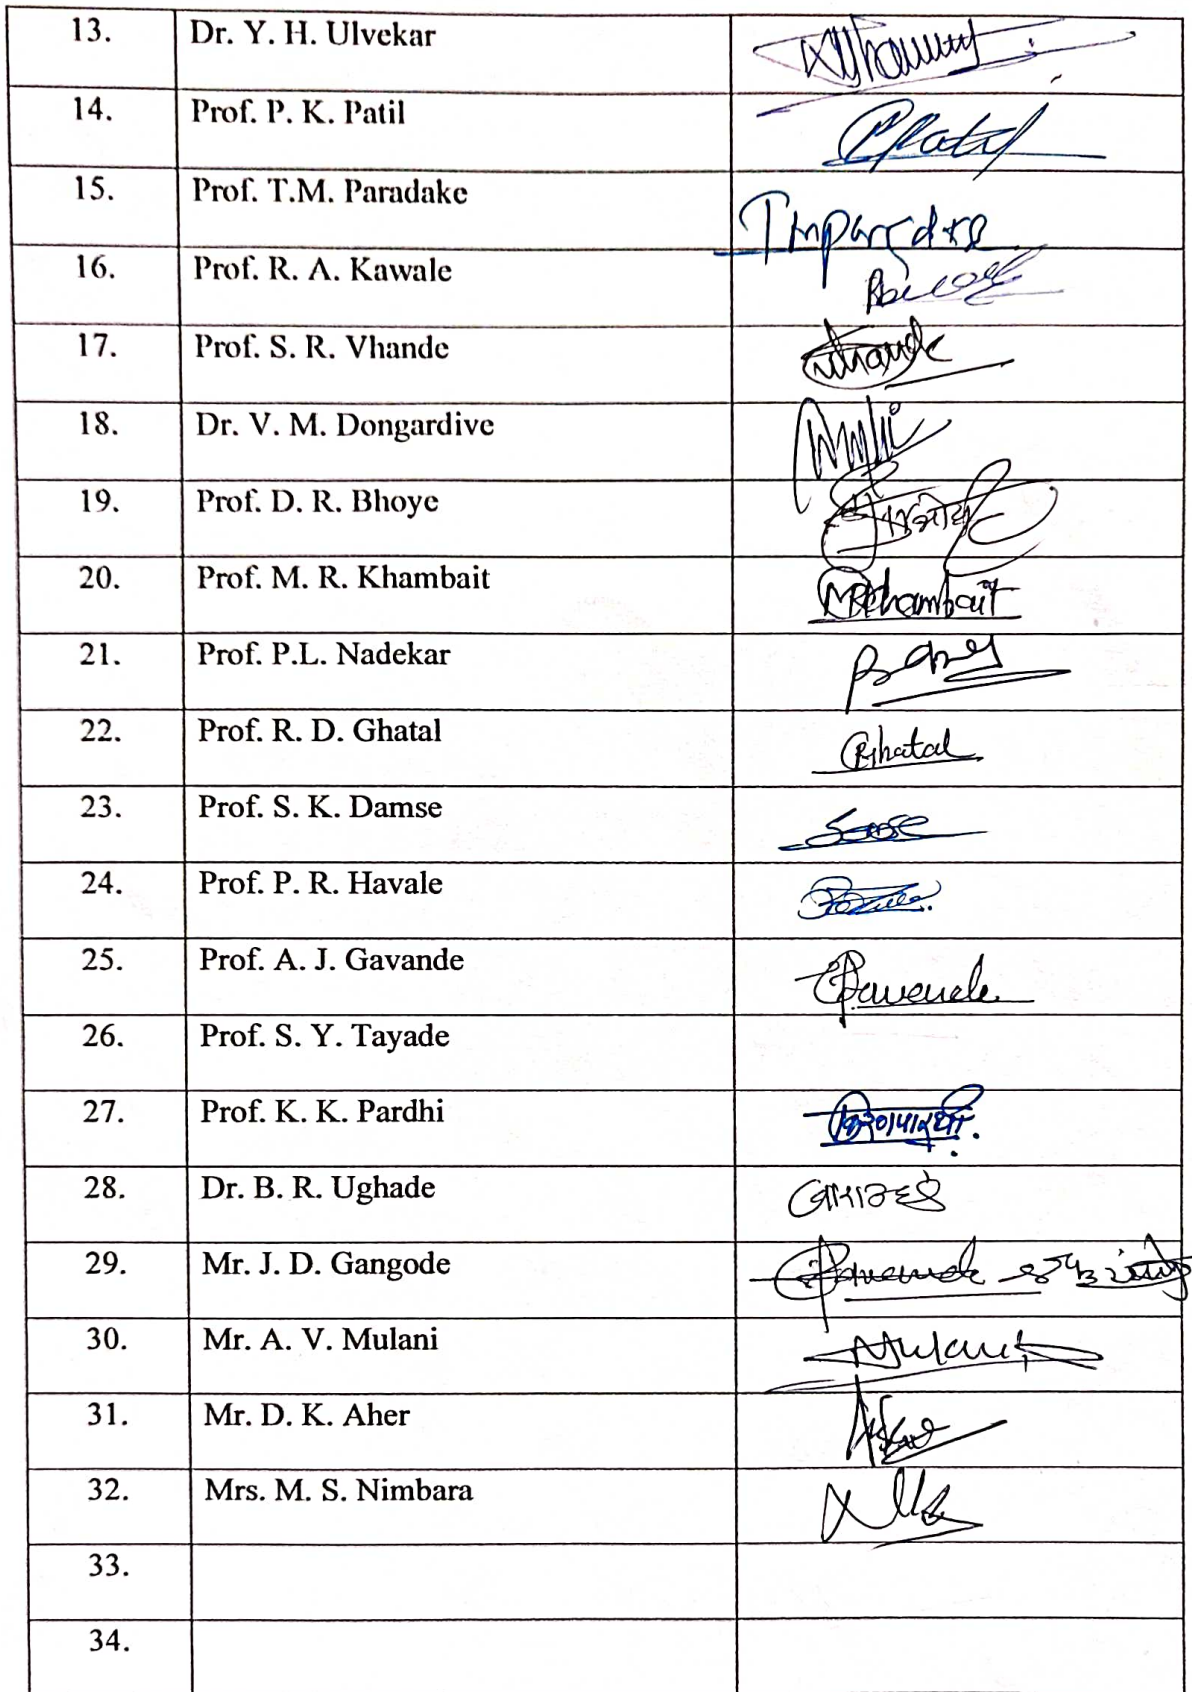 13. Dr. Y. H. Ulvekar
14. Prof. P. K. Patil PPatil
15. Prof. T.M. Paradake
16. Prof. R. A. Kawale
17. Prof. S. R. Vhande Vhande
18. Dr. V. M. Dongardive
19. Prof. D. R. Bhoye
20. Prof. M. R. Khambait MRKhambait
21. Prof. P.L. Nadekar
22. Prof. R. D. Ghatal Ghatal
23. Prof. S. K. Damse
24. Prof. P. R. Havale
25. Prof. A. J. Gavande
26. Prof. S. Y. Tayade
27. Prof. K. K. Pardhi
28. Dr. B. R. Ughade
29. Mr. J. D. Gangode
30. Mr. A. V. Mulani
31. Mr. D. K. Aher
32. Mrs. M. S. Nimbara
33.
34.